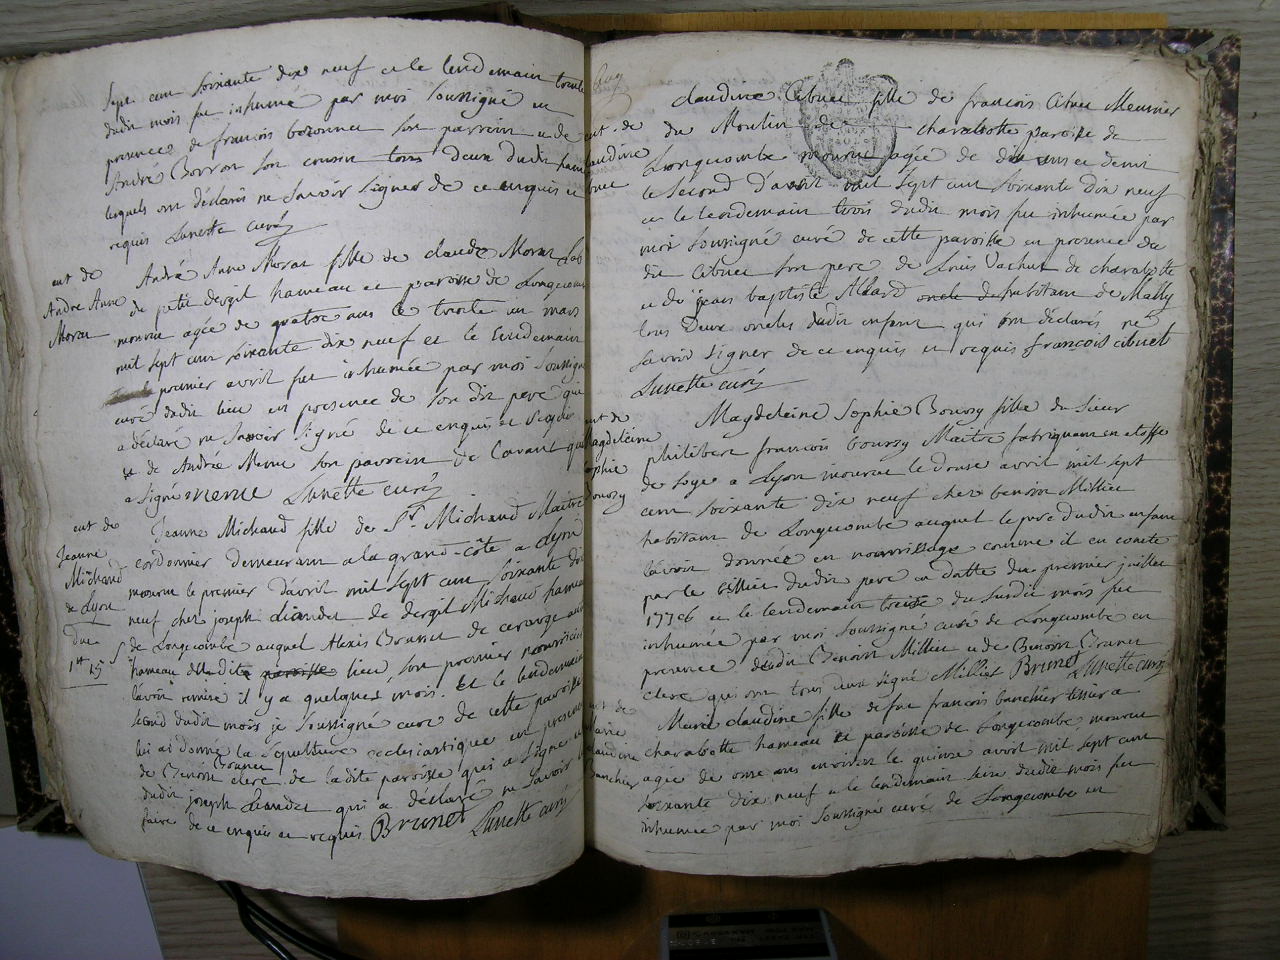 sept cent soixante dix neuf et le lendemain trente
dudit mois fut inhumé par moi soussigné en
presence de francois bozonnet son parrein et de
André Borron son cousin tous deux dudit ham
lequels ont déclarés ne savoir signer de ce enquis et
requis Lunette curé
ent de
Andre Anne
Moran
André Anne Moran fille de claude Moran Lab
du petit dergil hameau et paroisse de Longecom
mourut agée de quatre ans le trente un mars
mil sept cent soixante dix neuf et le lendemain
premier avril fut inhumée par moi soussigné
curé dudit lieu en presence de son dit pere qui
a déclaré ne savoir signé de ce enquis et requis
et de André Mene son parrein de l'avant qui
a signé mene Lunette curé
ent de
Jeanne
Michaud
de Lyon
Jeanne Michaud fille de Sr Michaud Maitre
cordonier demeurant a la grand-côte a Lyon
mourut le premier d'avril mil sept cent soixante dix
neuf chez joseph Liandet de dergil Michaud hameau
de Longecombe auquel Alexis Brunet de
hameau dudit paroisse lieu, son premier nourricier
l'avoit remise il y a quelques mois. et le lendemain
second dudit mois je soussigné curé de cette paroisse
lui ai donné la sepulture ecclesiastique en presence
de Benoit Brunet clerc de la dite paroisse qui a signé
dudit joseph Liandet qui a déclaré ne savoir
faire de ce enquis et requis Brunet Lunette curé
ent de
claudine
cibuet
claudine Cibuet fille de francois Cibuet Meunier
du Moulin de charabotte paroisse de
Longecombe mourut agée de dix ans et demi
le second d'avril mil sept cent soixante dix neuf
et le lendemain trois dudit mois fut inhumée par
moi soussigné curé de cette paroisse en presence du
dit cibuet son pere de Louis Vachet de charabotte
et de jean baptiste Allard oncle de habitant de Mally
tous deux oncles dudit enfant qui ont déclarés ne
savoir signer de ce enquis et requis françois cibuet
Lunette curé
ent de
Magdeleine
sophie
Boussy
Magdeleine Sophie Boussy fille du Sieur
philibert francois boussy Maitre fabriquant en etoffe
de soye a Lyon mourut le douse avril mil sept
cent soixante dix neuf chez benoit Milliet
habitant de Longecombe auquel le pere dudit enfant
l'avoit donnée en nourrissage comme il en conste
par le billiet dudit pere en datte du premier juillet
1776 et le lendemain treise du susdit mois fut
inhumée par moi soussigné curé de Longecombe en
presence dudit Benoit Milliet et de Benoit Brunet
clerc qui ont tous deux signé Milliet Brunet Lunette curé
ent de
Marie
claudine
Banchier
Marie claudine fille de feu francois banchier a
charabotte hameau et paroisse de Longecombe mourut
agée de onse ans environ le quinse avril mil sept cent
soixante dix neuf et le lendemain seise dudit mois fut
inhumée par moi soussigné curé de Longecombe en